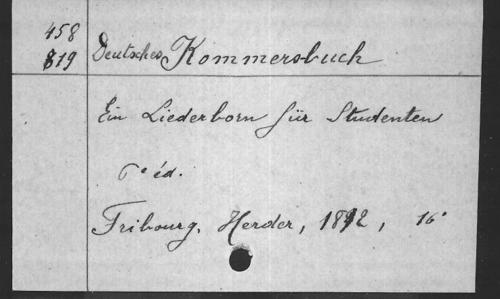 458
819
Deutsches Kommersbuch
Ein Liederborn für Studenten
6e éd.
Fribourg, Herder, 1892, 16°